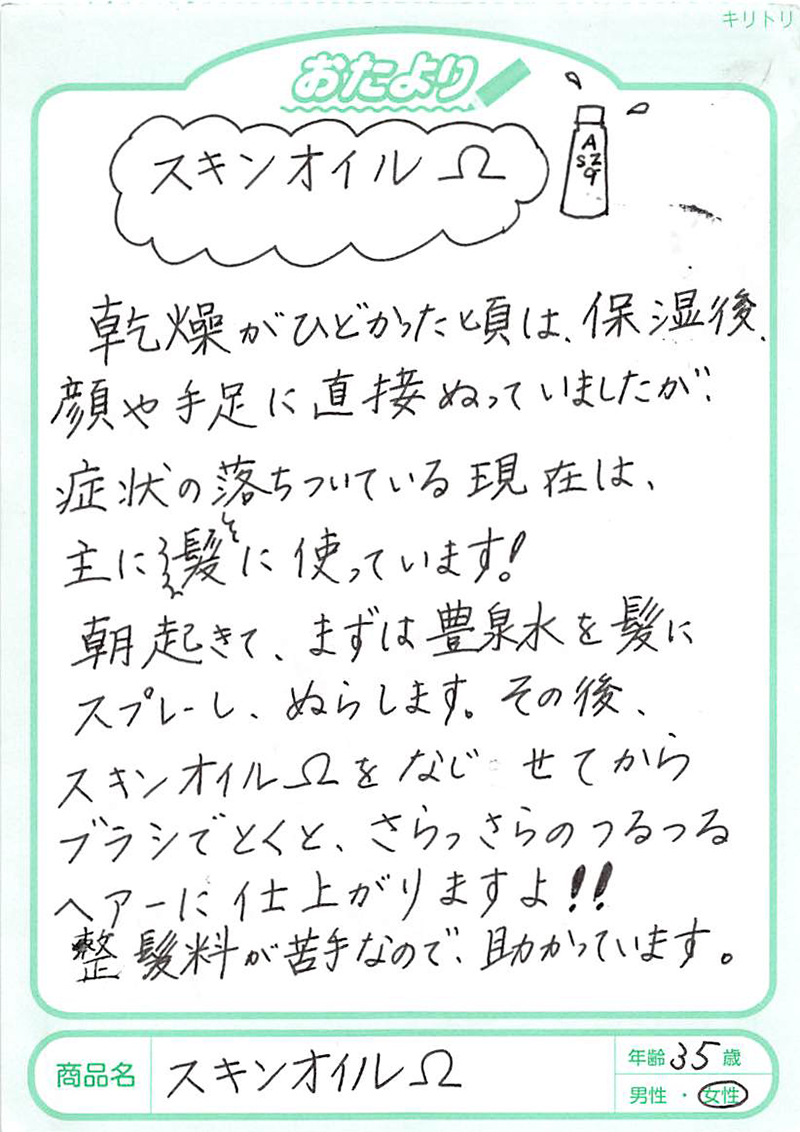 キリトリ
おたより
スキンオイルΩ
A
SZ
9
乾燥がひどかった頃は、保湿後、
顔や手足に直接ぬっていましたが、
症状の落ちついている現在は、
主に髪に使っています!
朝起きて、まずは豊泉水を髪に
スプレーし、ぬらします。その後、
スキンオイルΩをなじ せてから
ブラシでとくと、さらっさらのつるつる
ヘアーに仕上がりますよ!!
整髪料が苦手なので、助かっています。
商品名 スキンオイルΩ
年齢 35 歳
男性・女性